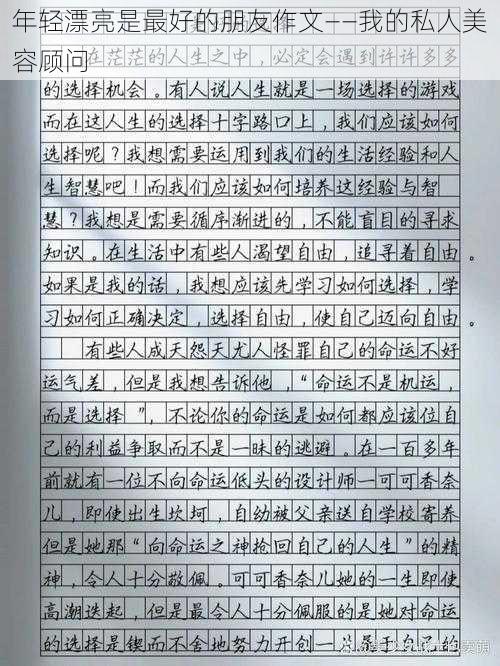 年轻漂亮是最好的朋友作文——我的私人美
容顾问
在茫茫的人生之中，必定会遇到许许多多
的选择机会。有人说人生就是一场选择的游戏
而在这人生的选择十字路口上，我们应该如何
选择呢？我想需要运用到我们的生活经验和人
生智慧吧！而我们应该如何培养这经验与智
慧？我想是需要循序渐进的，不能盲目的寻求
知识。在生活中有些人渴望自由，追寻着自由。
如果是我的话，我想应该先学习如何选择，学
习如何正确决定，选择自由，使自己迈向自由。
有些人成天怨天尤人怪罪自己的命运不好
运气差，但是我想告诉他，“命运不是机运，
而是选择”，不论你的命运是如何都应该位自
己的利益争取而不是一昧的逃避。在一百多年
前就有一位不向命运低头的设计师一可可香奈
儿，即使出生坎坷，自幼被父亲送自学校寄养
但是她那“向命运之神抢回自己的人生”的精
神，令人十分敬佩。可可香奈儿她的一生即使
高潮迭起，但是最令人十分佩服的是她对命运
的选择是锲而不舍地努力开创一